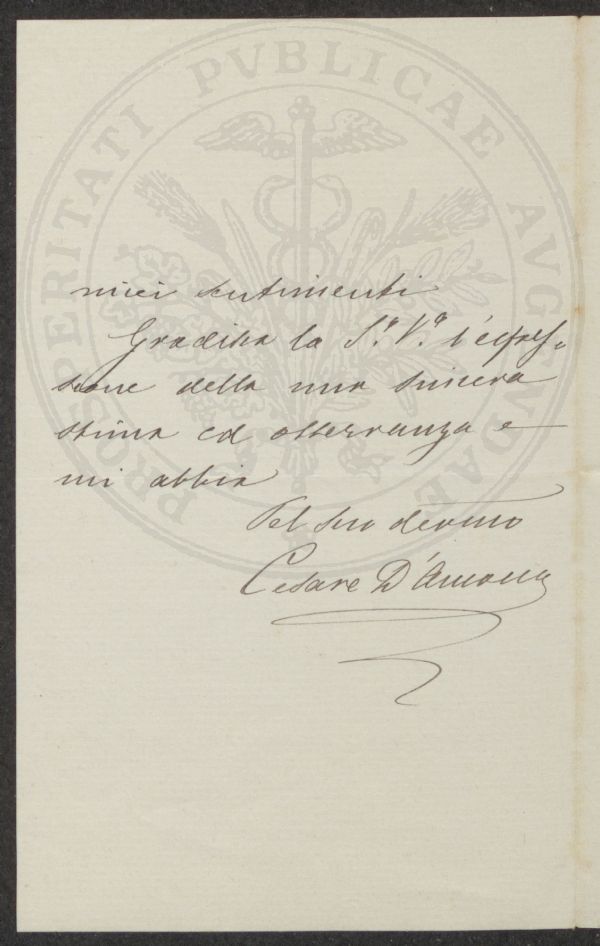 PROSPERITATI PVBLICAE AVGENDAE
miei sentimenti
Gradisca la S.ª V.ª l'espres-
sione della mia sincera
stima ed osservanza e
mi abbia
Pel suo devmo
Cesare D'Amora